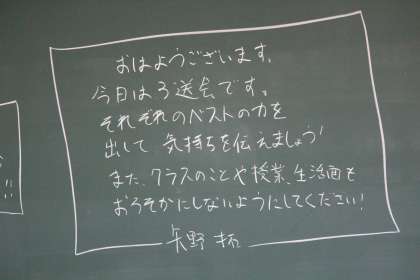 おはようございます。
今日は3送会です。
それぞれのベストの力を
出して、気持ちを伝えましょう!
また、クラスのことや授業、生活面も
おろそかにしないようにしてください!
矢野 拓
!!